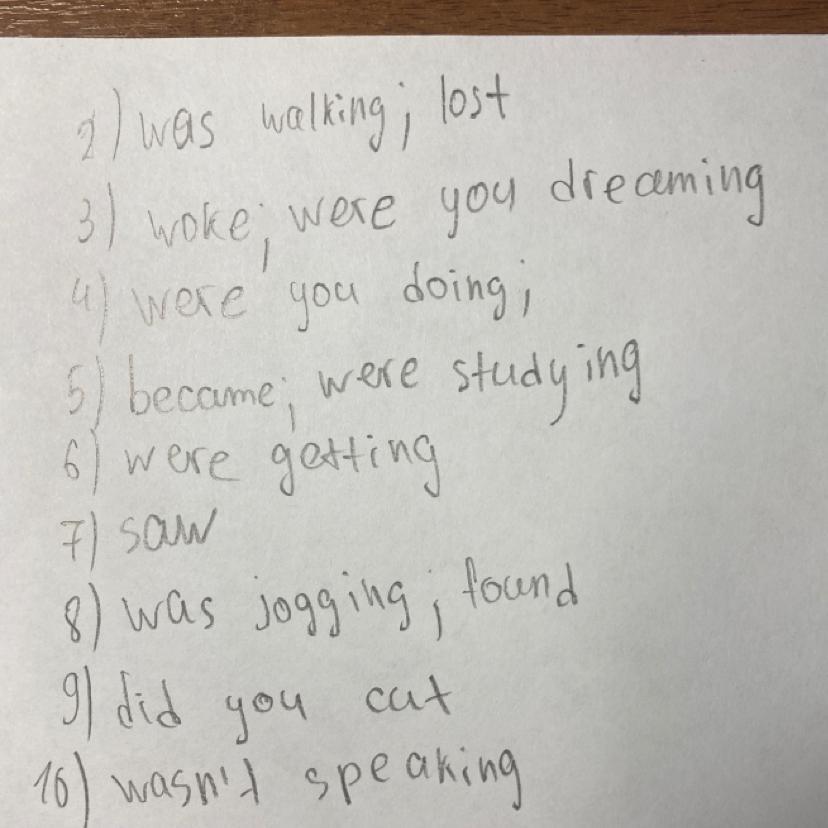 2) was walking; lost
3) woke; were you dreaming
4) were you doing;
5) became; were studying
6) were getting
7) saw
8) was jogging; found
9) did you cut
10) wasn't speaking